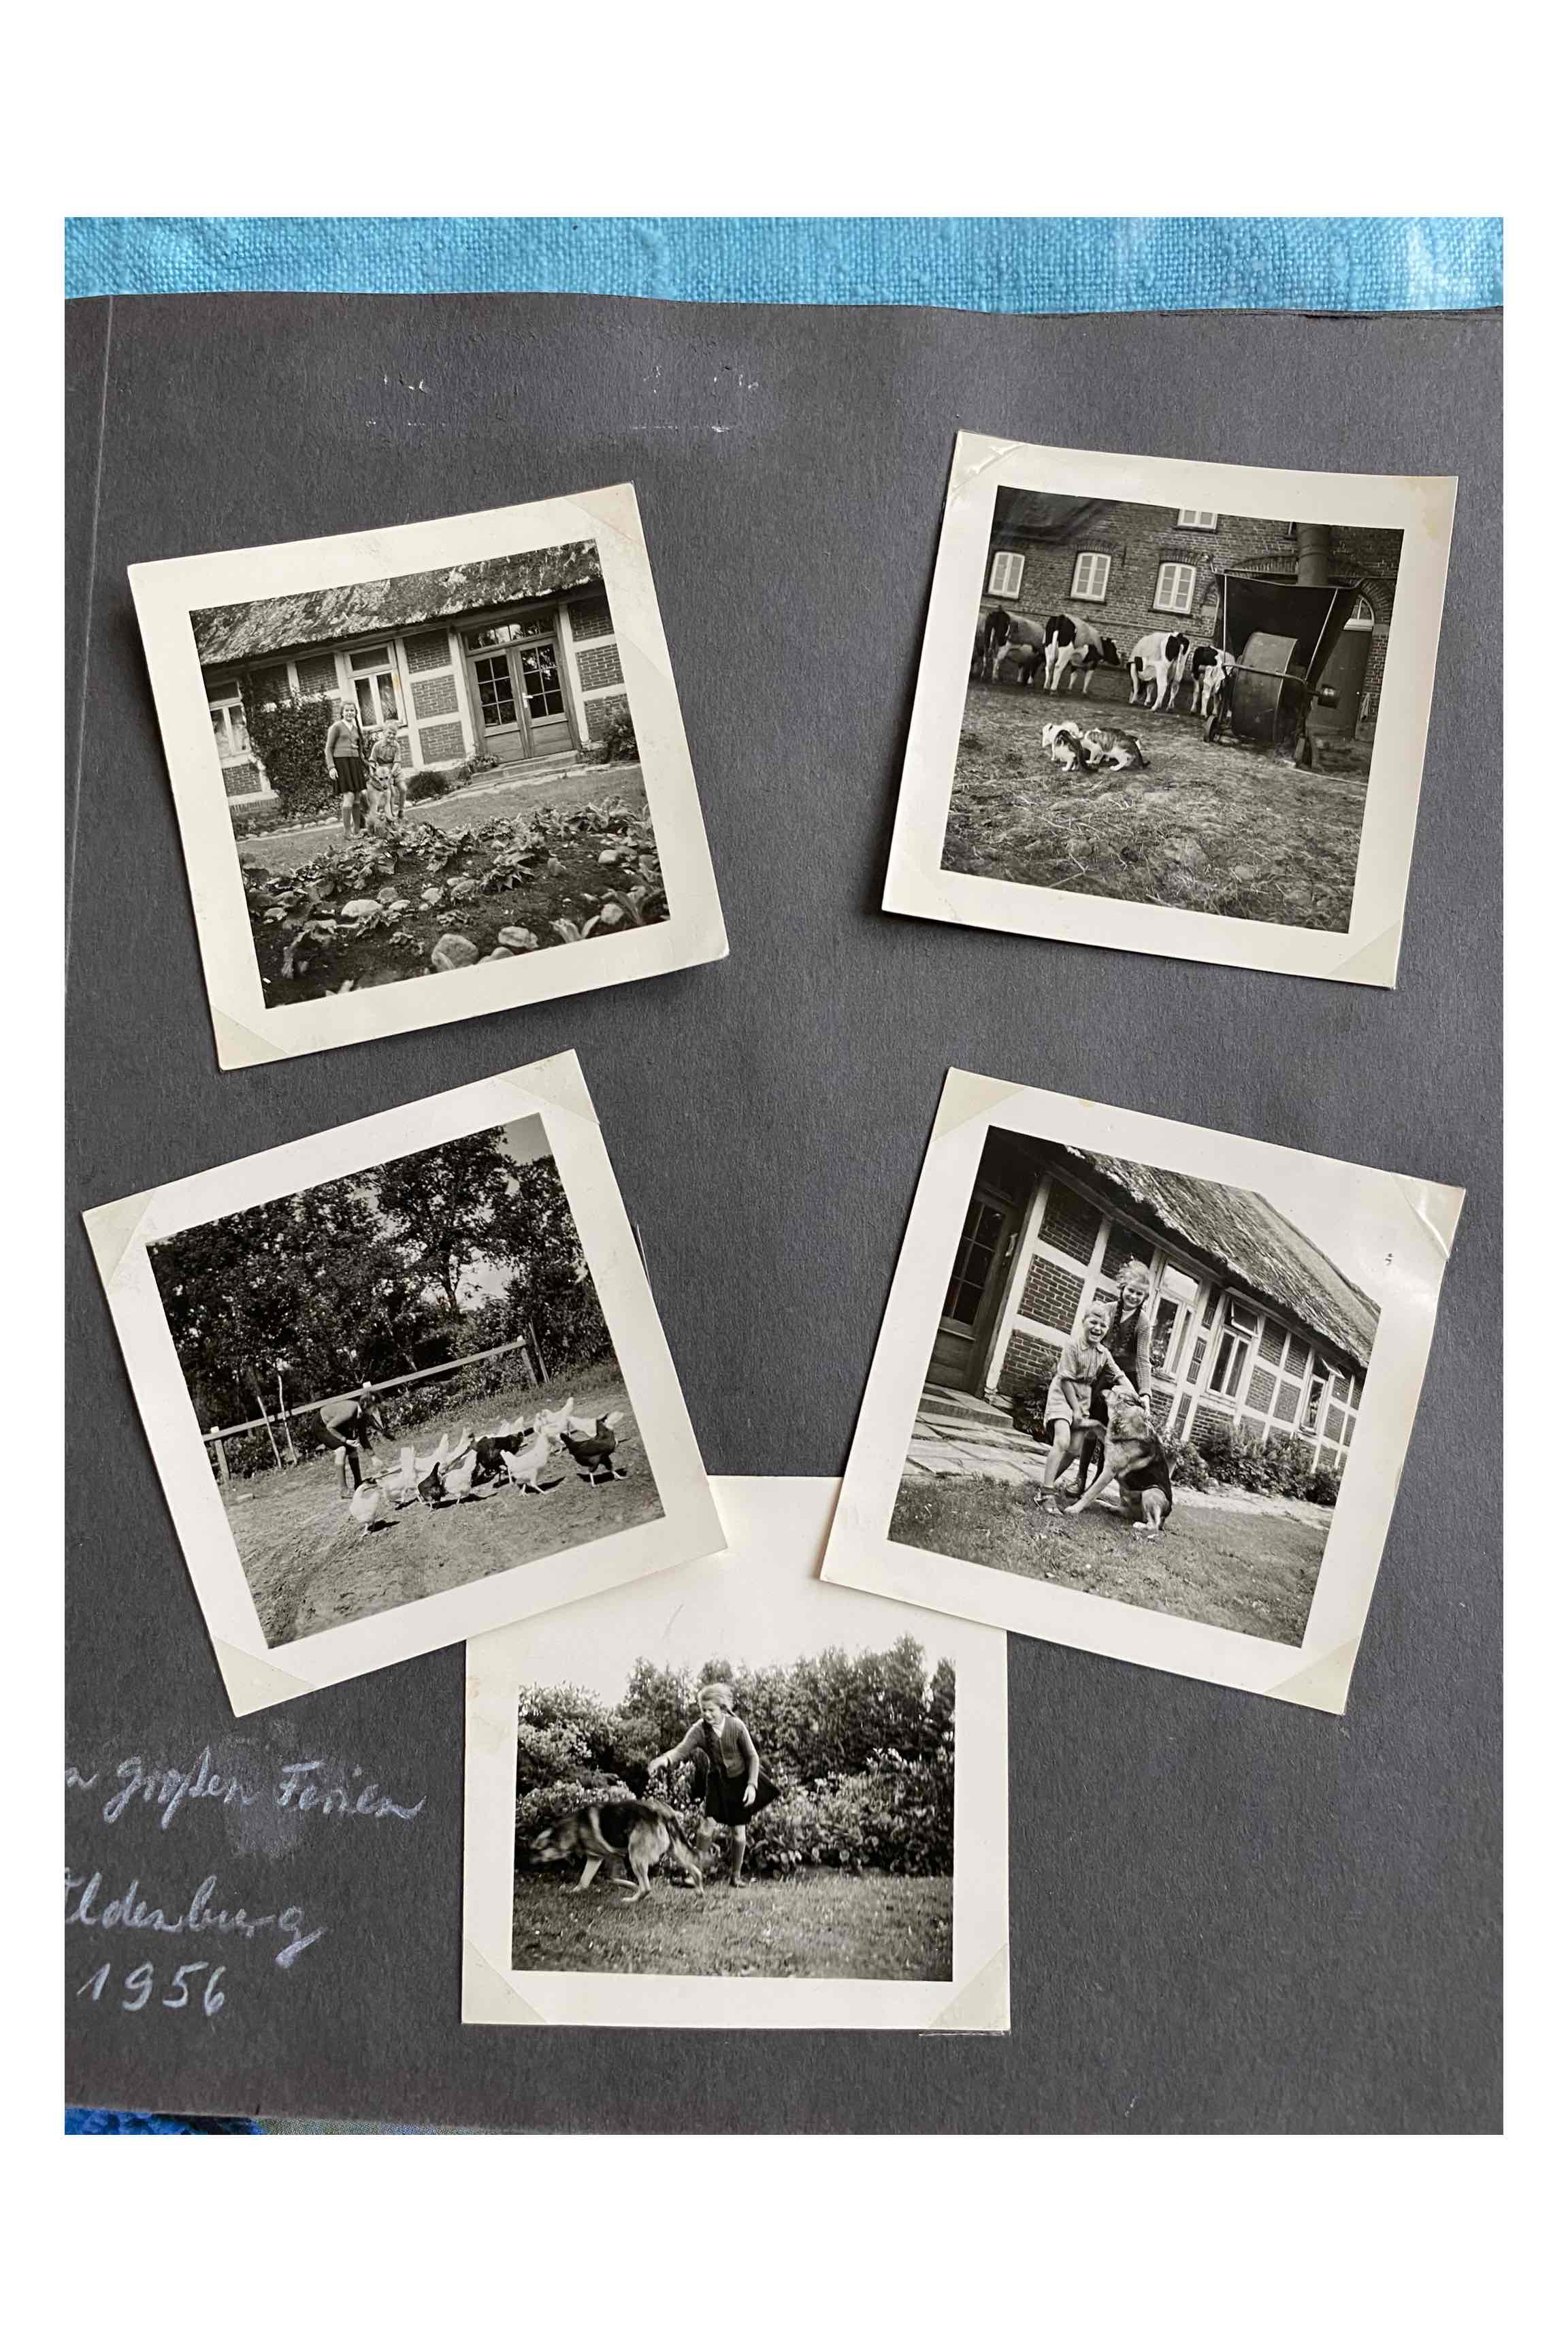 n großen Ferien
ldenburg
1956